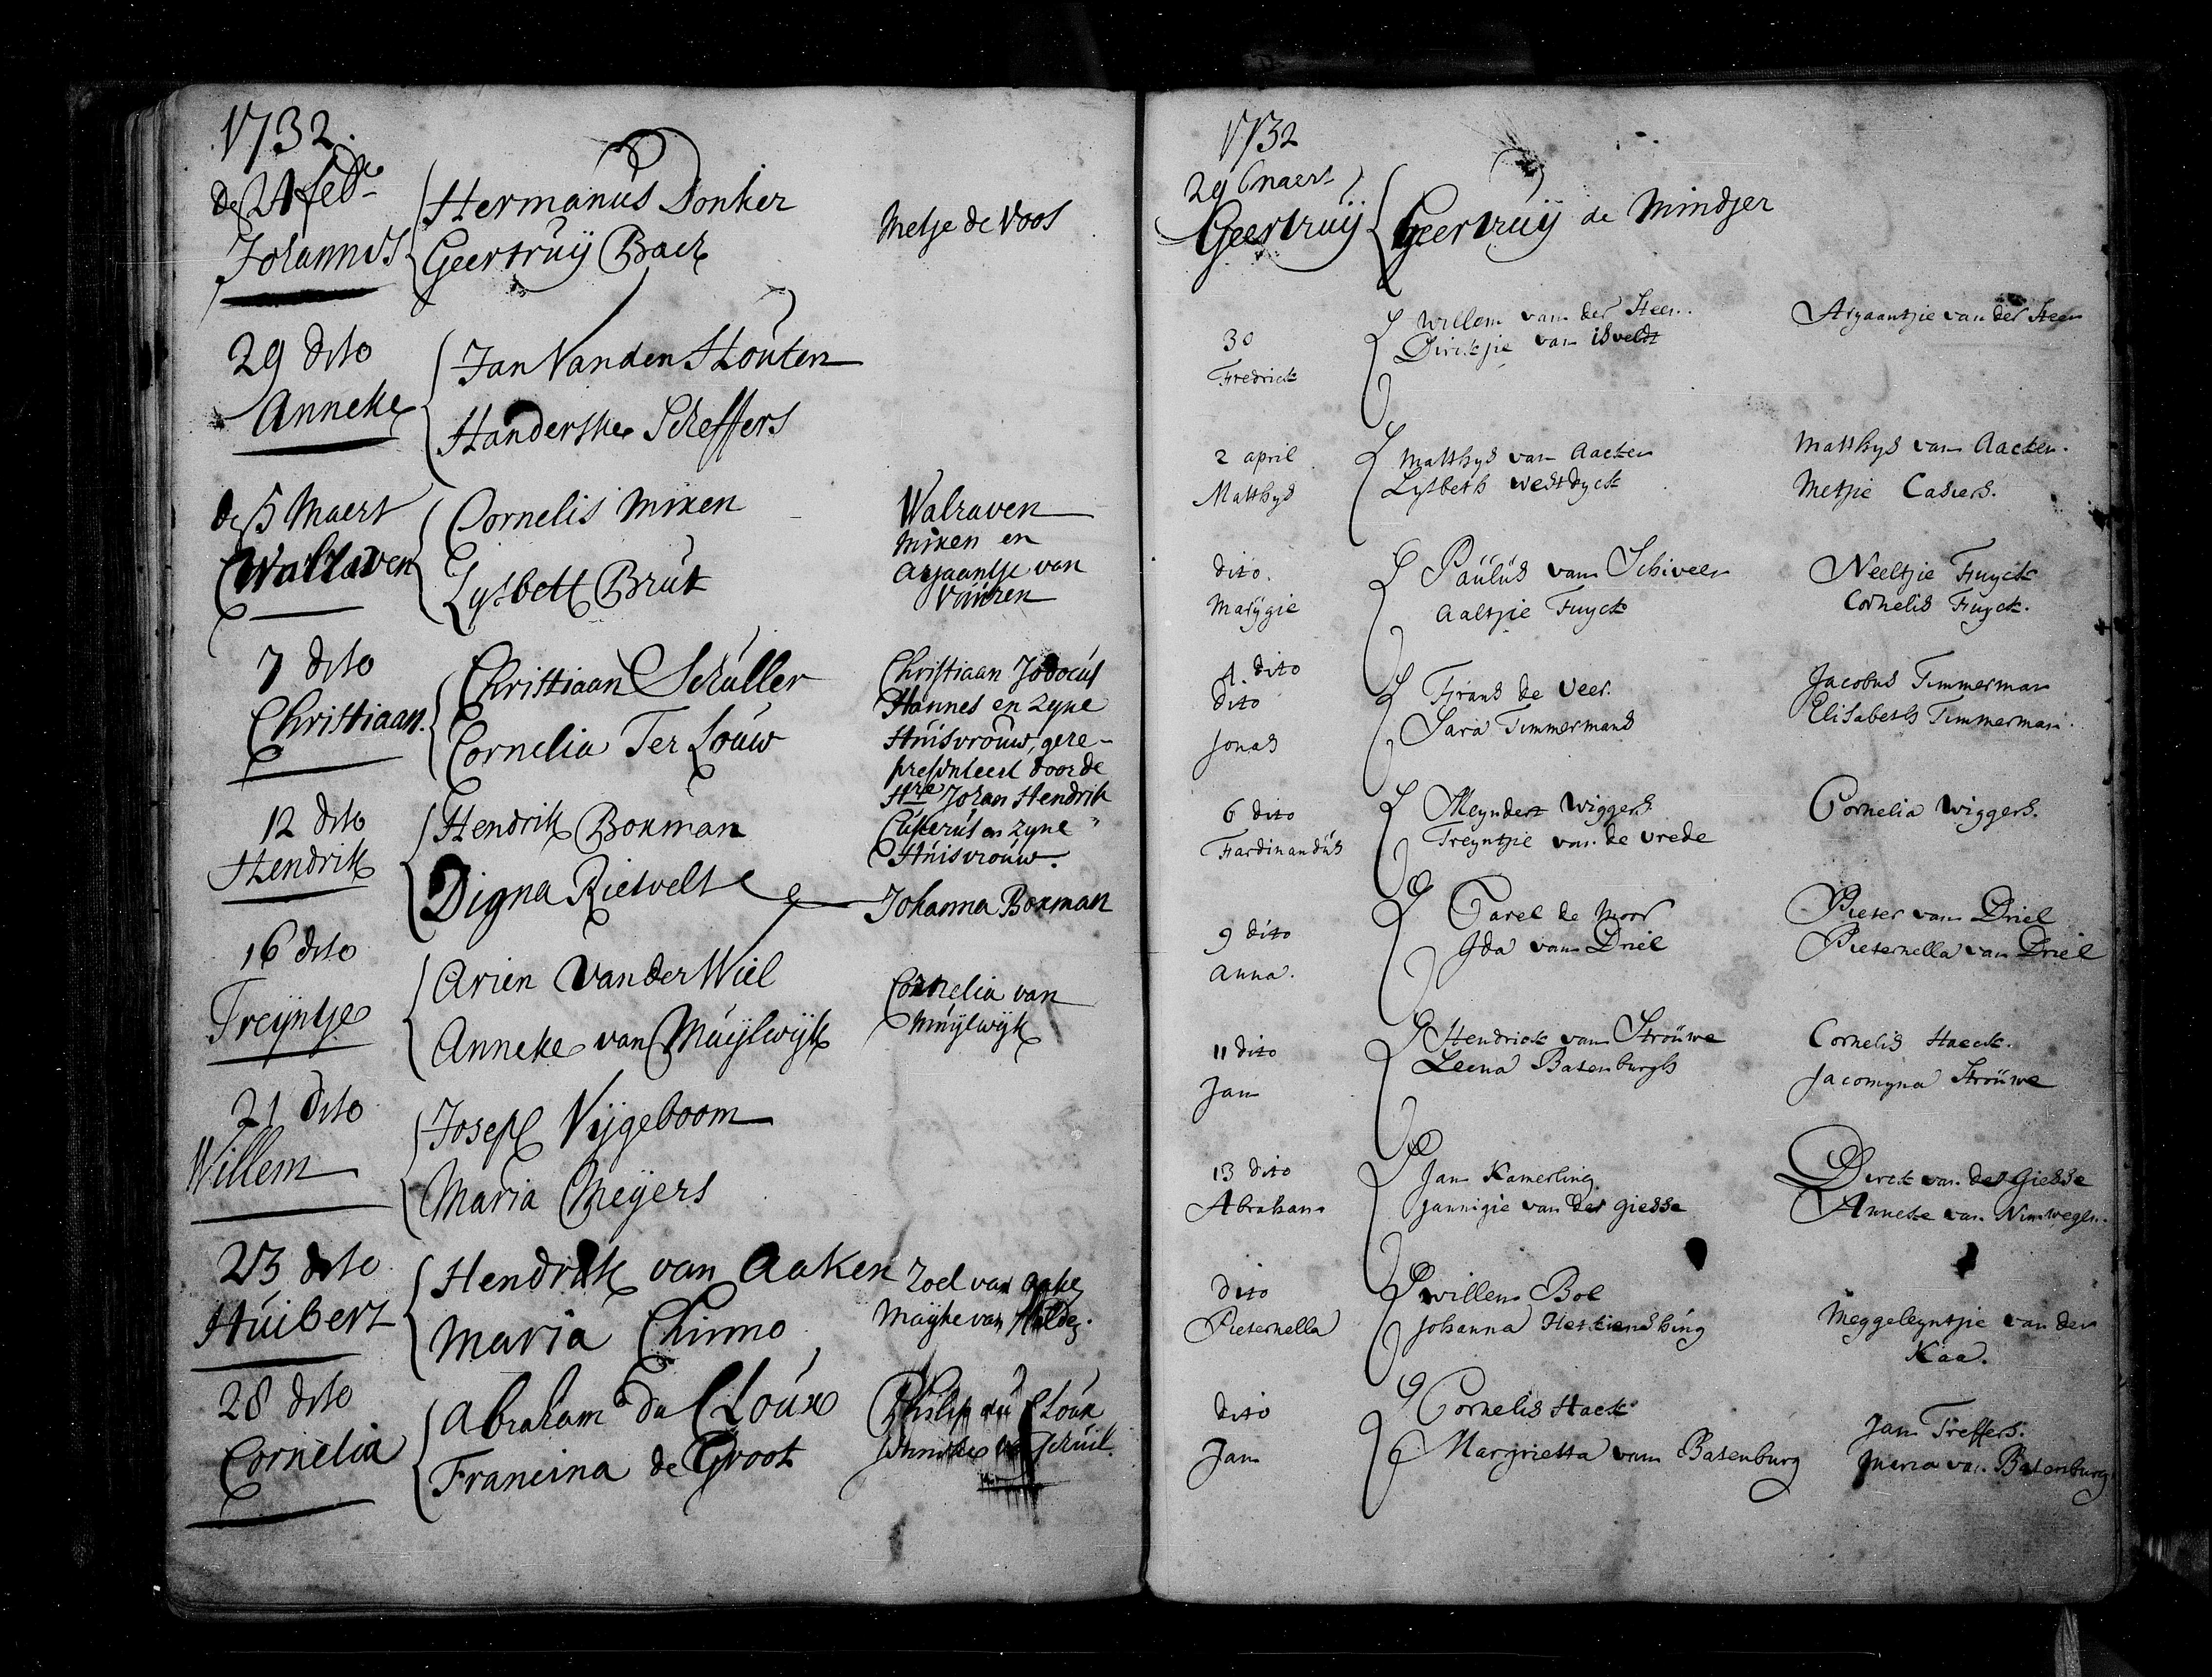 1732.
de 24 feb.
Johannes
Hermanus Donker
Geertruij Back
Metje de Voos
29 dito
Anneke
Jan Van den Houten
Handerske Scheffers
de 5 Maert
Walraven
Cornelis Mixen
Lysbett Brut
Walraven
Mixen en
Arjaantje van
7 dito
Christiaan.
Christiaan Schuller
Cornelia Ter Louw
Christiaan Jodocus
Hannes en zyne
Huisvrouw, gere-
presenteert door de
Hre Johan Hendrik
en zyne
Huisvrouw.
12 dito
Hendrik
Hendrik Boxman
Digna Rietvelt
Johanna Boxman
16 dito
Treijntje
Arien Van der Wiel
Anneke van Muijlwijk
Cornelia van
Muijlwijk
21 dito
Willem
Joseph Vijgeboom
Maria Meijers
23 dito
Huibert
Hendrik van Aaken
Maria Chimo
Roel van Aake
Maijke van
28 dito
Cornelia
Abraham du Cloux
Francina de Groot
Philip du Cloux
1732
29 Maert
Geertruij
Geertruij de Mindjer
30
Fredrick
Willem van der Steen.
Dirckjie van isveldt
Aryaantjie van der Steen
2 april
Matthys
Matthys van Aacken
Lysbeth Westdyck
Matthys van Aacken.
Metjie Casiers.
dito.
Marÿgie
Paulus van Schiveen
Aaltjie Fuyck
Neeltjie Fuyck
Cornelis Fuyck.
4. dito
dito
Jonas
Frans de Veer.
Sara Timmermans
Jacobus Timmerman
Elisabeth Timmerman.
6 dito
Fardinandus
Meyndert Wiggers
Treyntjie van de Vrede
Cornelia Wiggers.
9 dito
Anna.
Carel de Moor
Ida van Driel
Pieter van Driel
Pieternella van Driel
11 dito
Jan
Hendrick van Strouwe
Leena Batenburgh
Cornelis Haeck.
Jacomyna Strouwe
13 dito
Abraham
Jan Kamerling
Jannigie van der Giesse
Dirck van der Giesse
Anneke van Nimwegen.
dito
Pieternella
Willem Bol
Johanna
Meggeleyntjie van der
Kaa.
dito
Jan
Cornelis Haek
Margrietta van Batenburg
Jan Treffers.
Maria van Batenburg